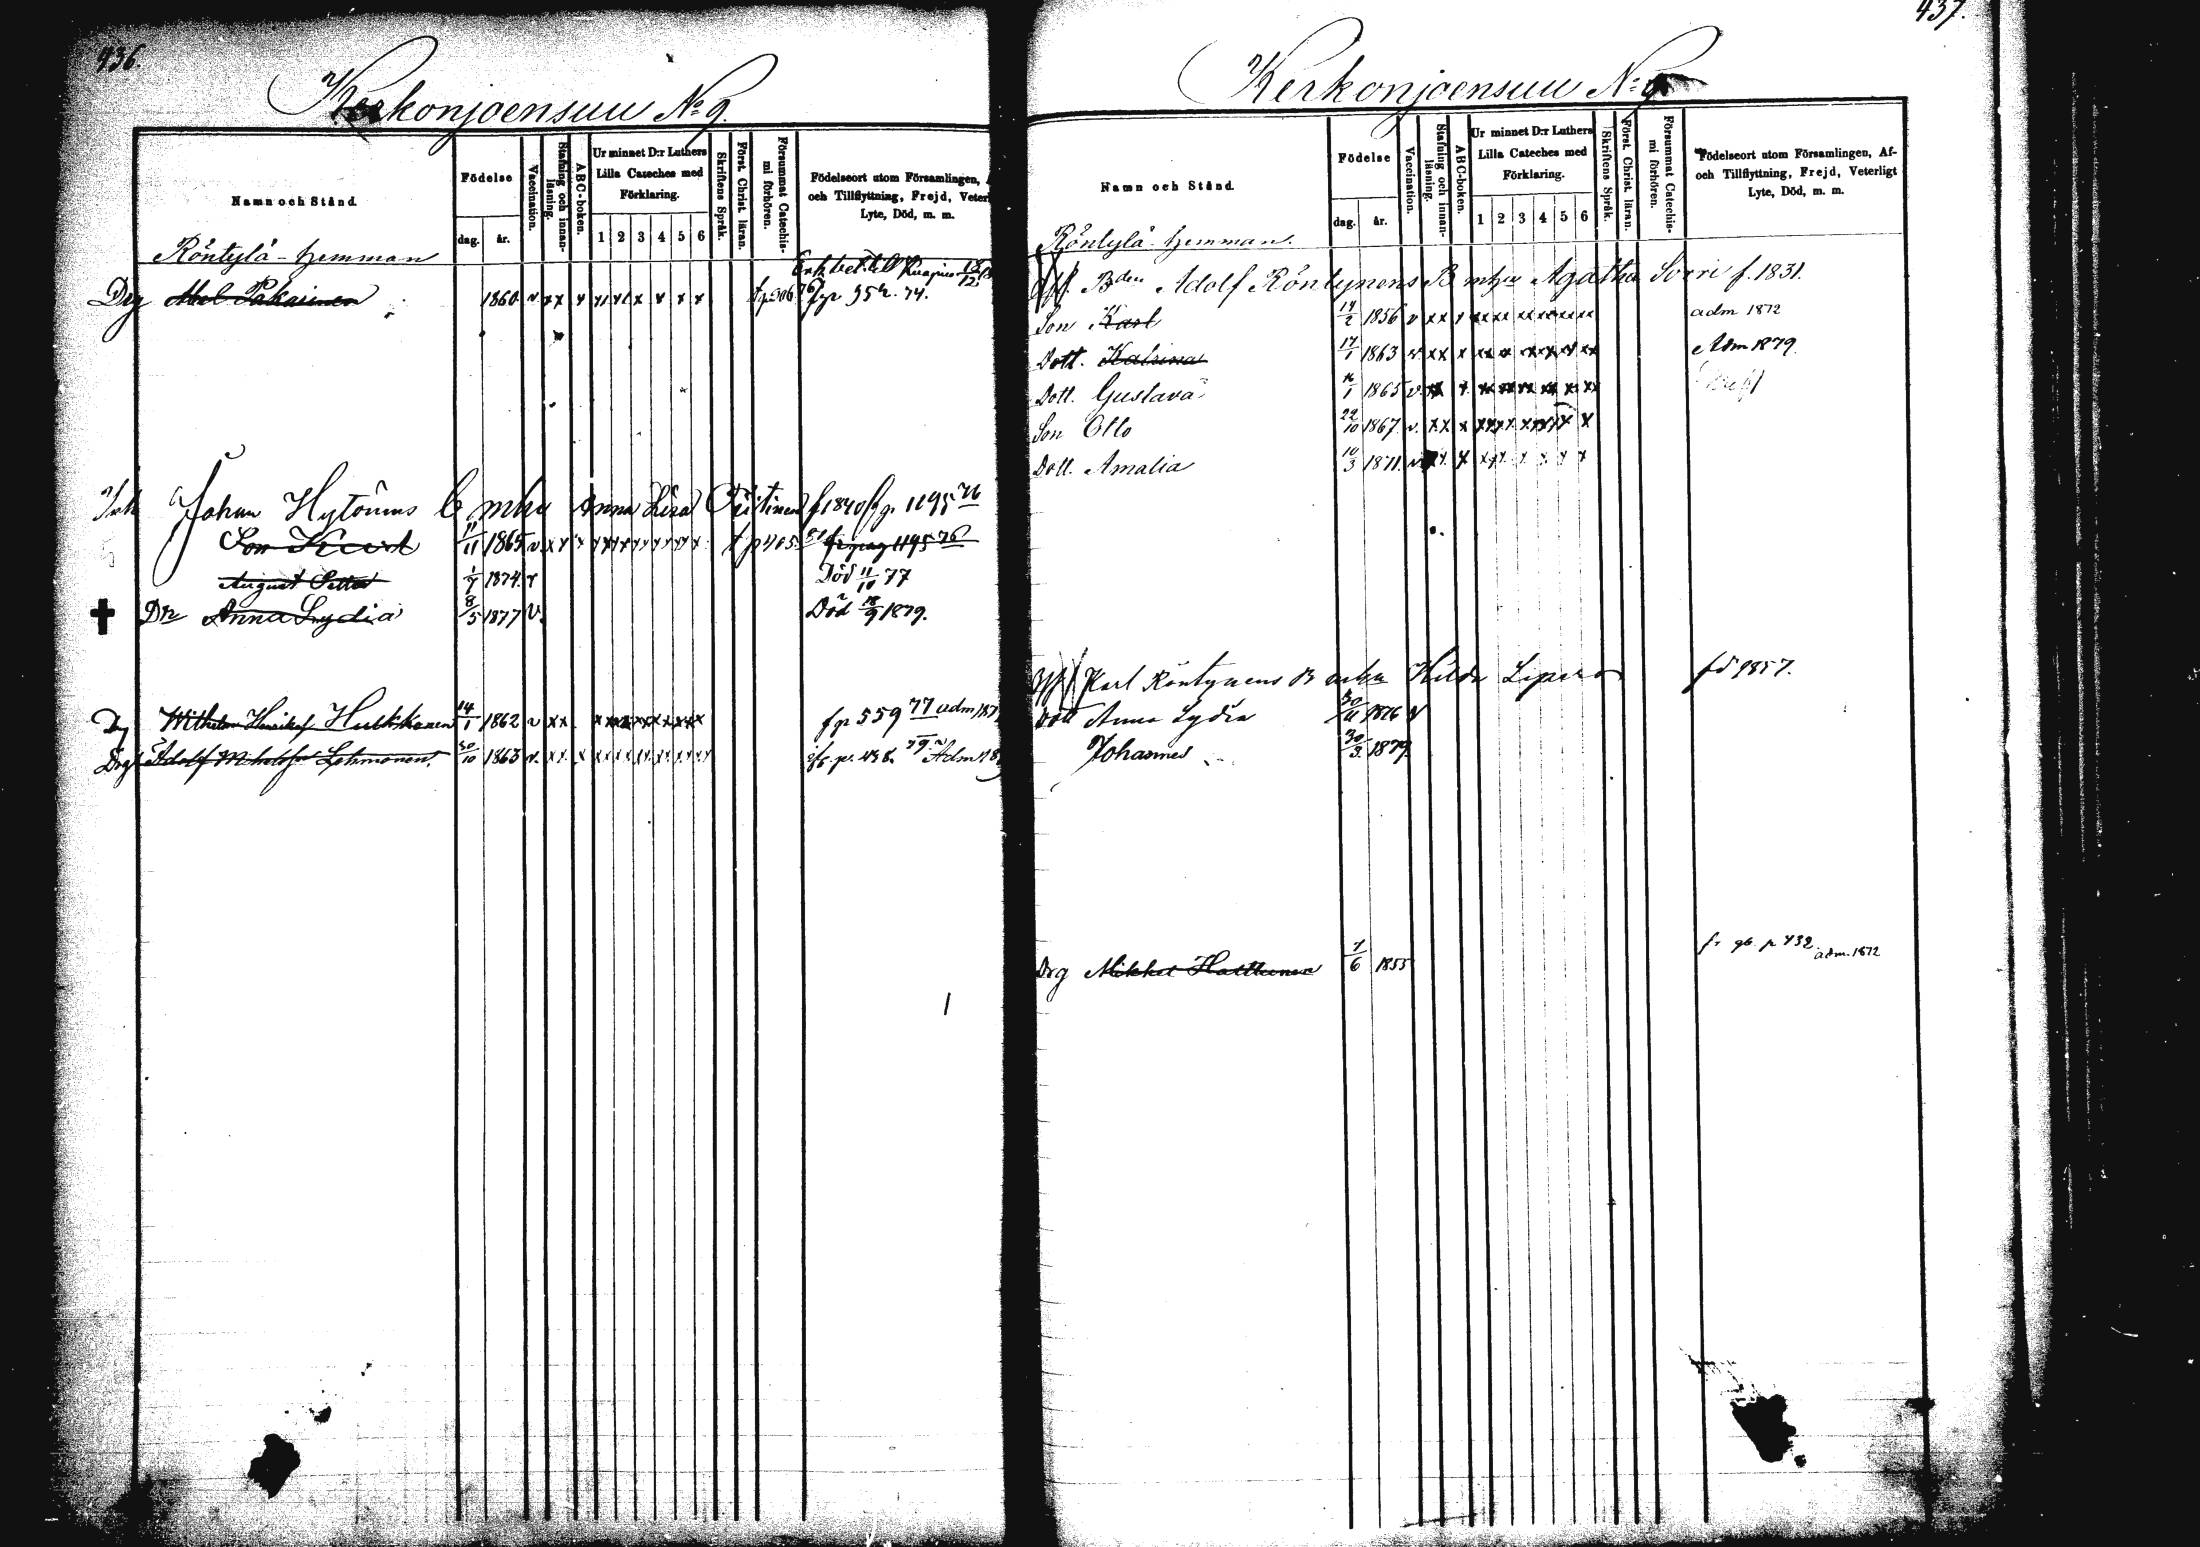 436.
Kerkonjoensuu No 9.
Namn och Stånd
Födelse
dag.
år.
Vaccination.
Stafning och innan-
läsning.
ABC-boken.
Ur minnet D:r Luthers
Lilla Cateches med
Förklaring.
1 2 3 4 5 6
Skriftens Språk.
Först. Christ. läran.
Försummat Catechis-
mi förhören.
Födelseort utom Församlingen,
och Tillflyttning, Frejd, Veterl
Lyte, Död, m. m.
Röntylä-hemman
Drg Abel Pakarinen 1860 v xx x
Johan Hytönens mhu Anna Lisa f 1840 fr p. 1195 76
Son 11/11 1865 v xx fr pag 1195 76
August 1/7 1874 v Död 11/10 77
Dr Anna Lydia 8/5 1877 v. Död 18/9 1879.
Drg Wilhelm 14/1 1862 v xx fr p 559 77 adm 187
Drg Adolf 30/10 1863 v. xx x Adm 18
437.
Kerkonjoensuu No 9
Namn och Stånd
Födelse
dag.
år.
Vaccination.
Stafning och innan-
läsning.
ABC-boken.
Ur minnet D:r Luthers
Lilla Cateches med
Förklaring.
1 2 3 4 5 6
Skriftens Språk.
Först. Christ. läran.
Försummat Catechis-
mi förhören.
Födelseort utom Församlingen, Af-
och Tillflyttning, Frejd, Veterligt
Lyte, Död, m. m.
Röntylä-hemman.
Bden Adolf Röntynens B mhu Agatha Sorri f. 1831.
Son Karl 14/2 1856 v xx x adm 1872
Dott. Katrina 17/1 1863 v xx x Adm 1879.
Dott. Gustava 1865 v.
Son Otto 22/10 1867 v. xx x
Dott. Amalia 10/3 1871 v
Karl Röntynens mhu Hilda fd 1857.
Dott Anna Lydia 30/11 1876 v
Johannes 30/3 1879.
Drg Mikkel 7/6 1855 fr gb. p 432 adm. 1872